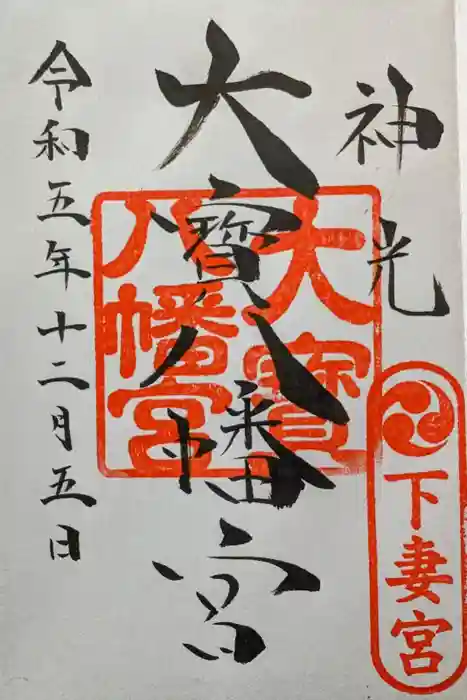 神光
下妻宮
大寶八幡宮
大寶八幡宮
令和五年十二月五日